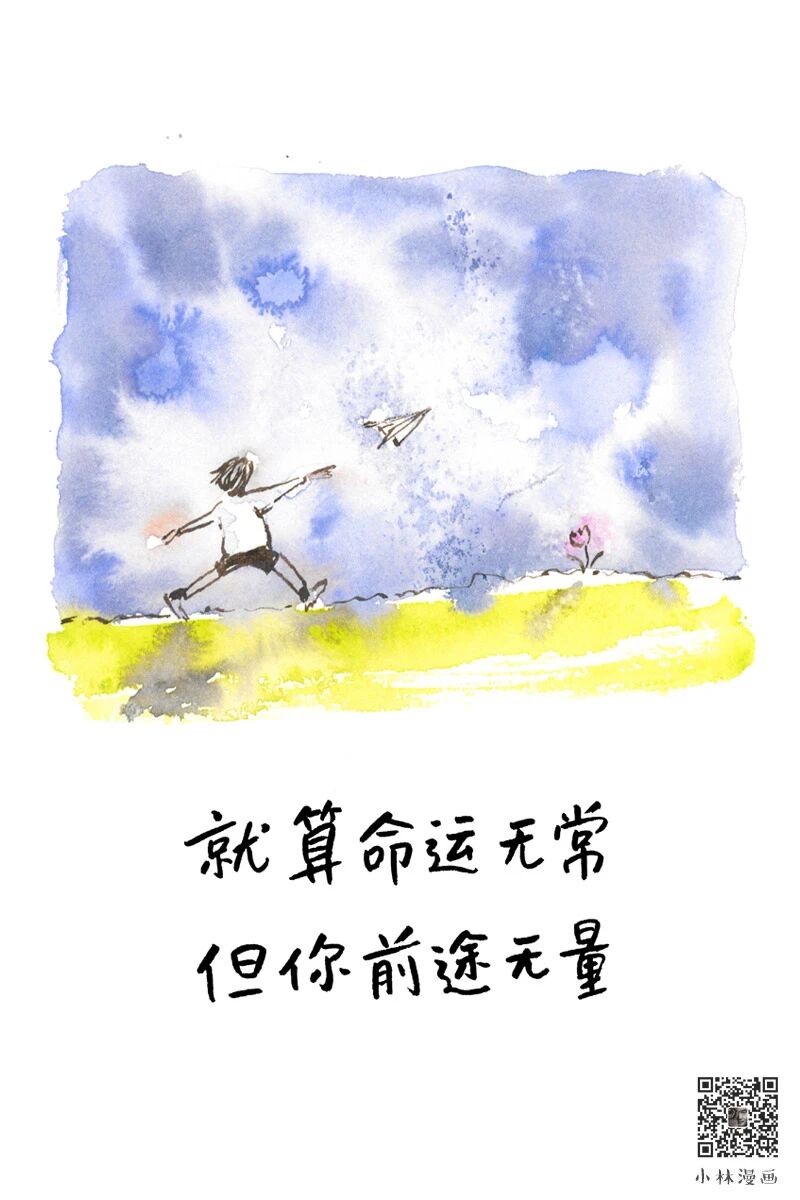 就算命运无常
但你前途无量
小林漫画